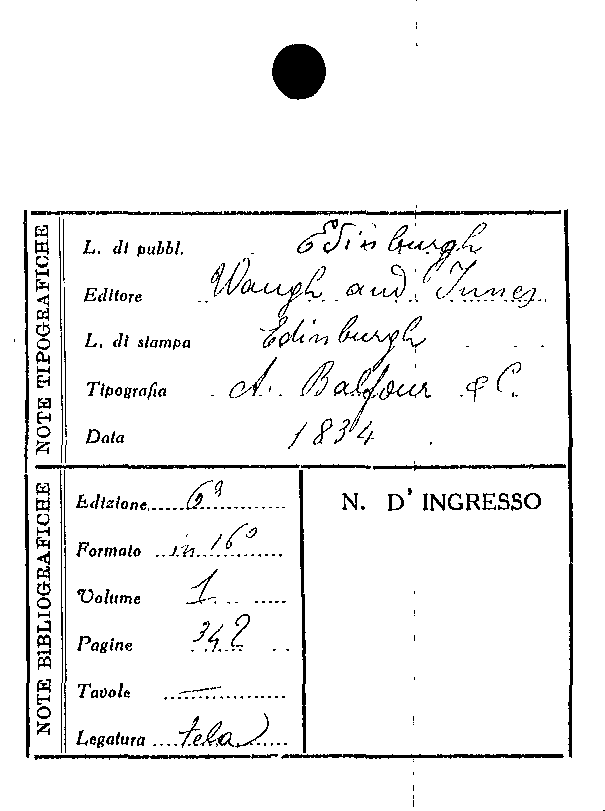 NOTE TIPOGRAFICHE
L. di pubbl. Edinburgh
Editore Waugh and Innes
L. di stampa Edinburgh
Tipografia A. Balfour & C.
Data 1834
NOTE BIBLIOGRAFICHE
Edizione 6ª
Formato in 16º
Volume 1
Pagine 342
Tavole —
Legatura tela
N. D' INGRESSO